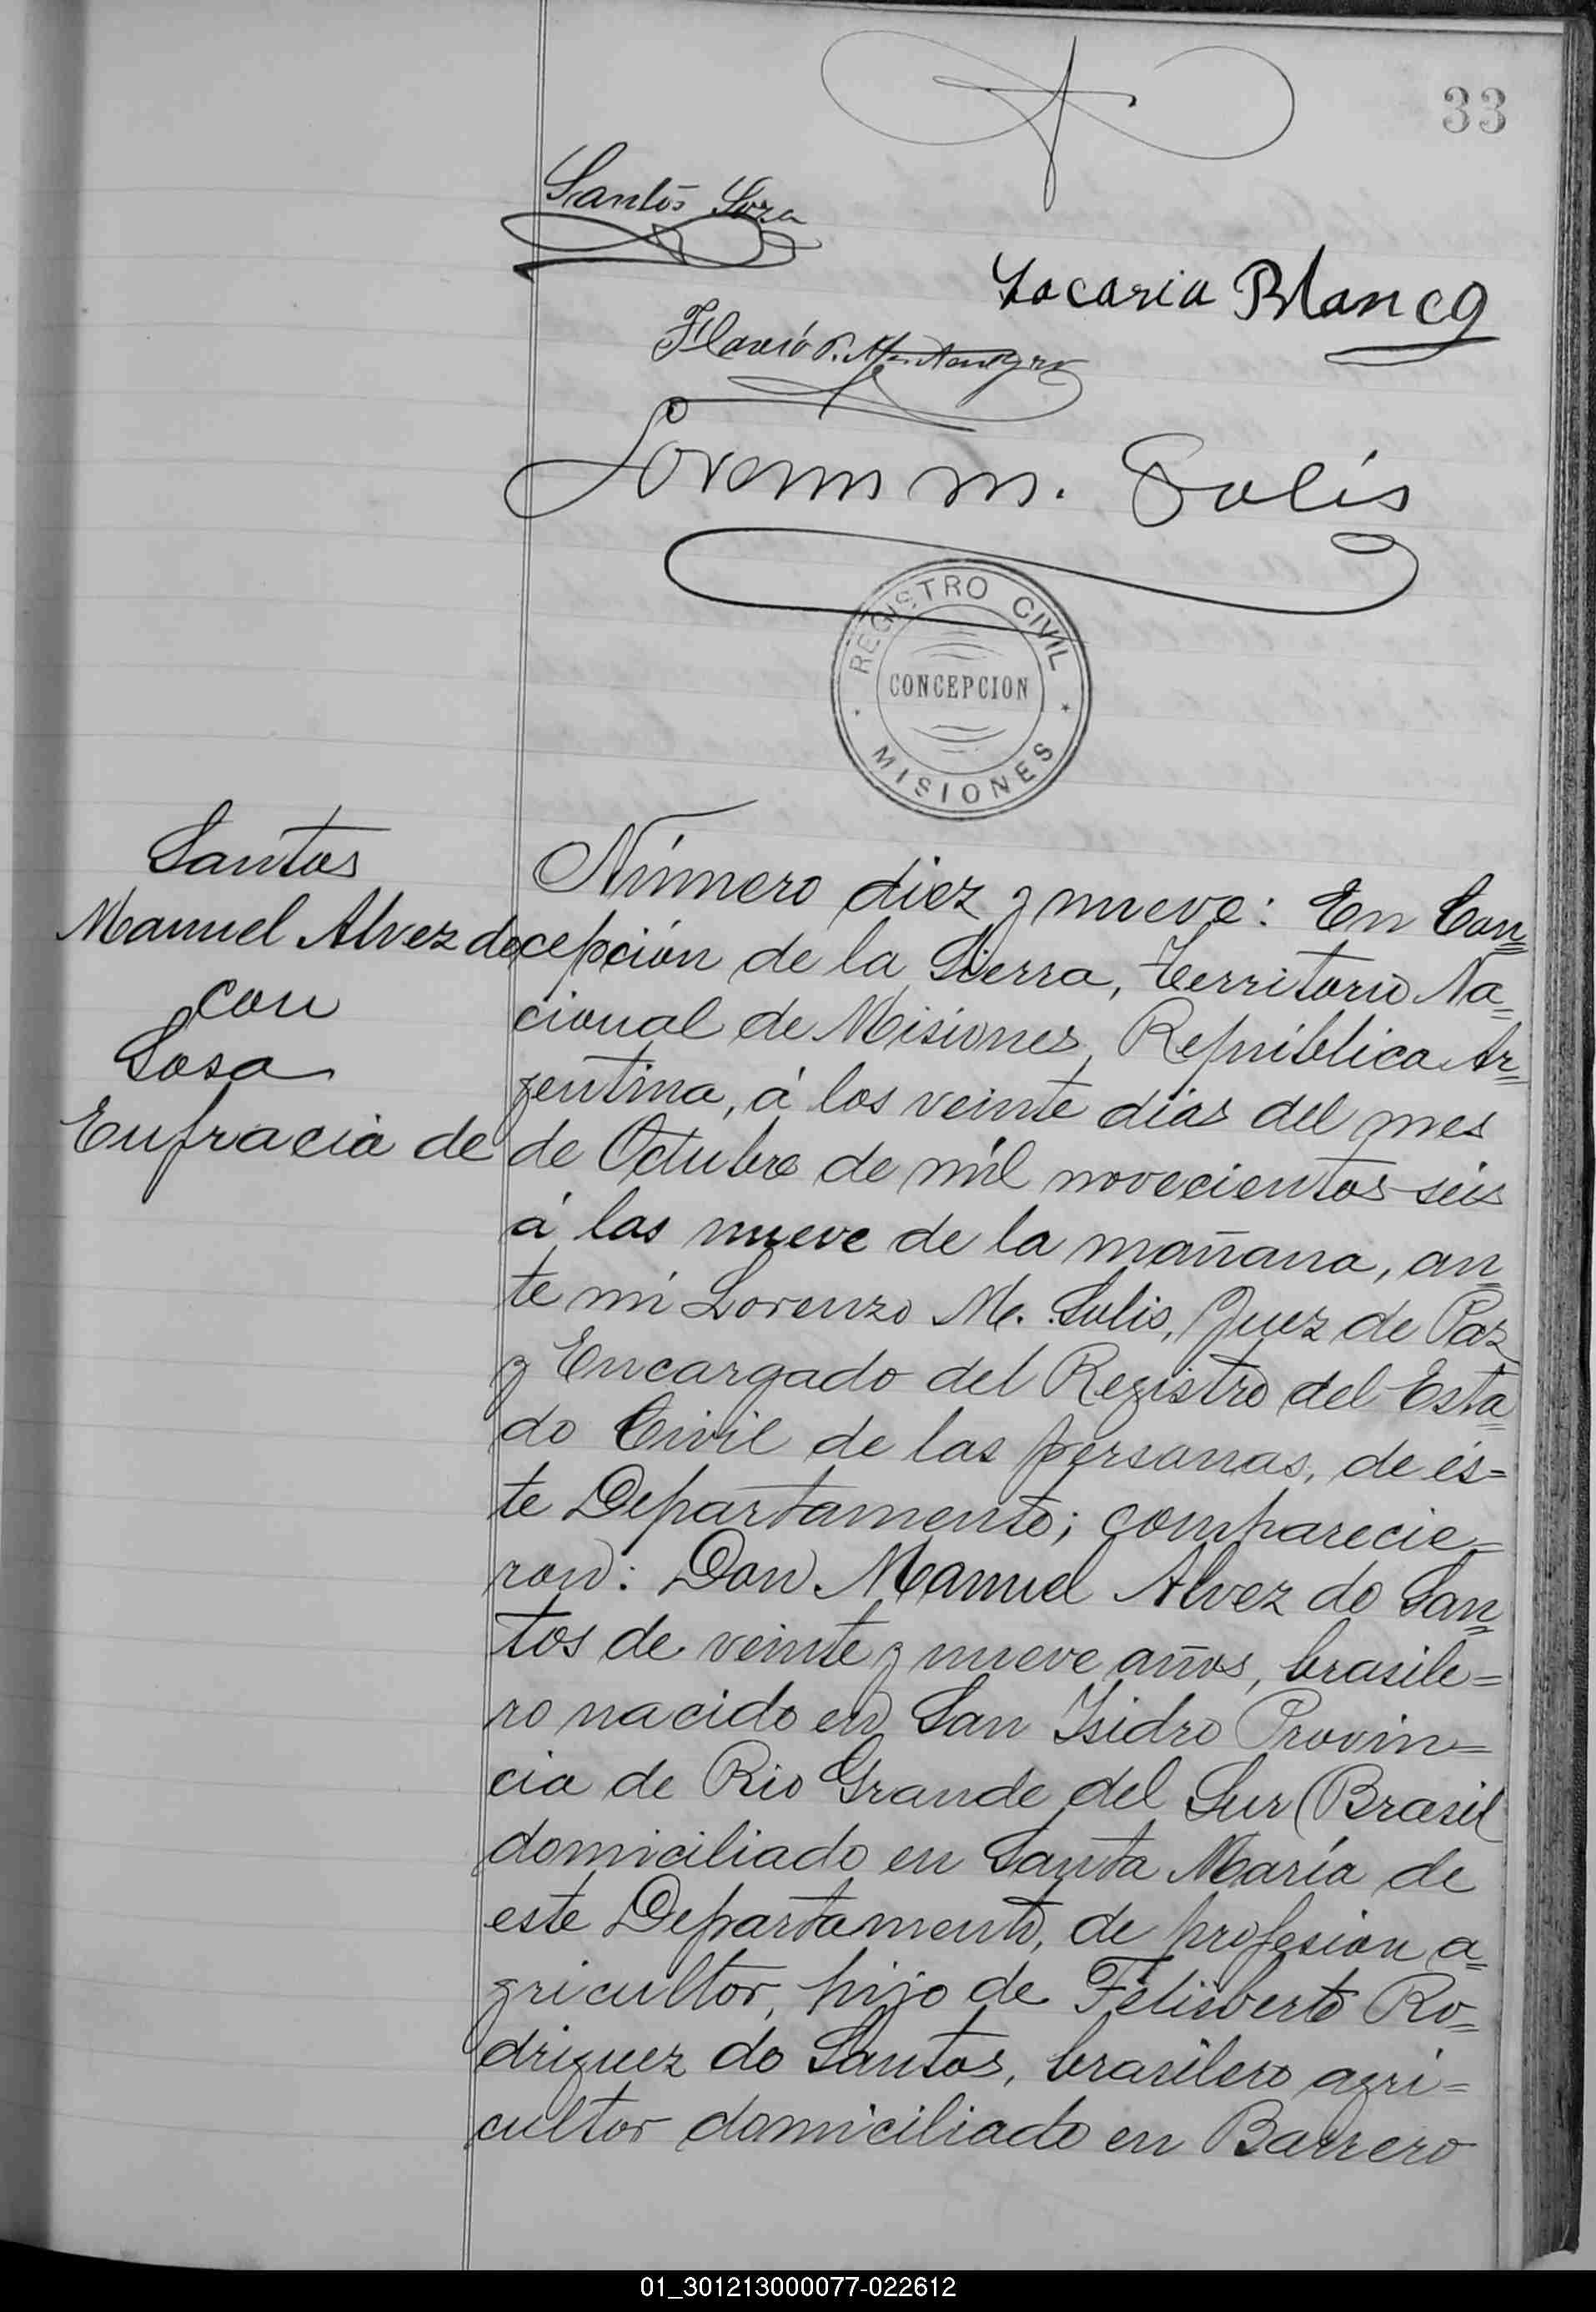 33
Santos Soza
Locaria Blanco
Flavió
Lorenzo M. Solis
REGISTRO CIVIL
CONCEPCION
MISIONES
Santos
Manuel Alvez do
con
Sosa
Eufracia de
Número diez y nueve: En Con=
cepción de la Sierra, Territorio Na=
cional de Misiones, República Ar=
gentina, á los veinte dias del mes
de Octubre de mil novecientos seis
á las nueve de la mañana, an=
te mi Lorenzo M. Solis, Juez de Paz
y Encargado del Registro del Esta=
do Civil de las personas, de és=
te Departamento; comparecie=
ron: Don Manuel Alvez do San=
tos de veinte y nueve años, brasile=
ro nacido en San Isidro Provin=
cia de Rio Grande del Sur (Brasil
domiciliado en Santa María de
este Departamento, de profesion a=
gricultor, hijo de Felisberto Ro=
driguez do Santos, brasilero agri=
cultor domiciliado en Barrero
01_301213000077-022612